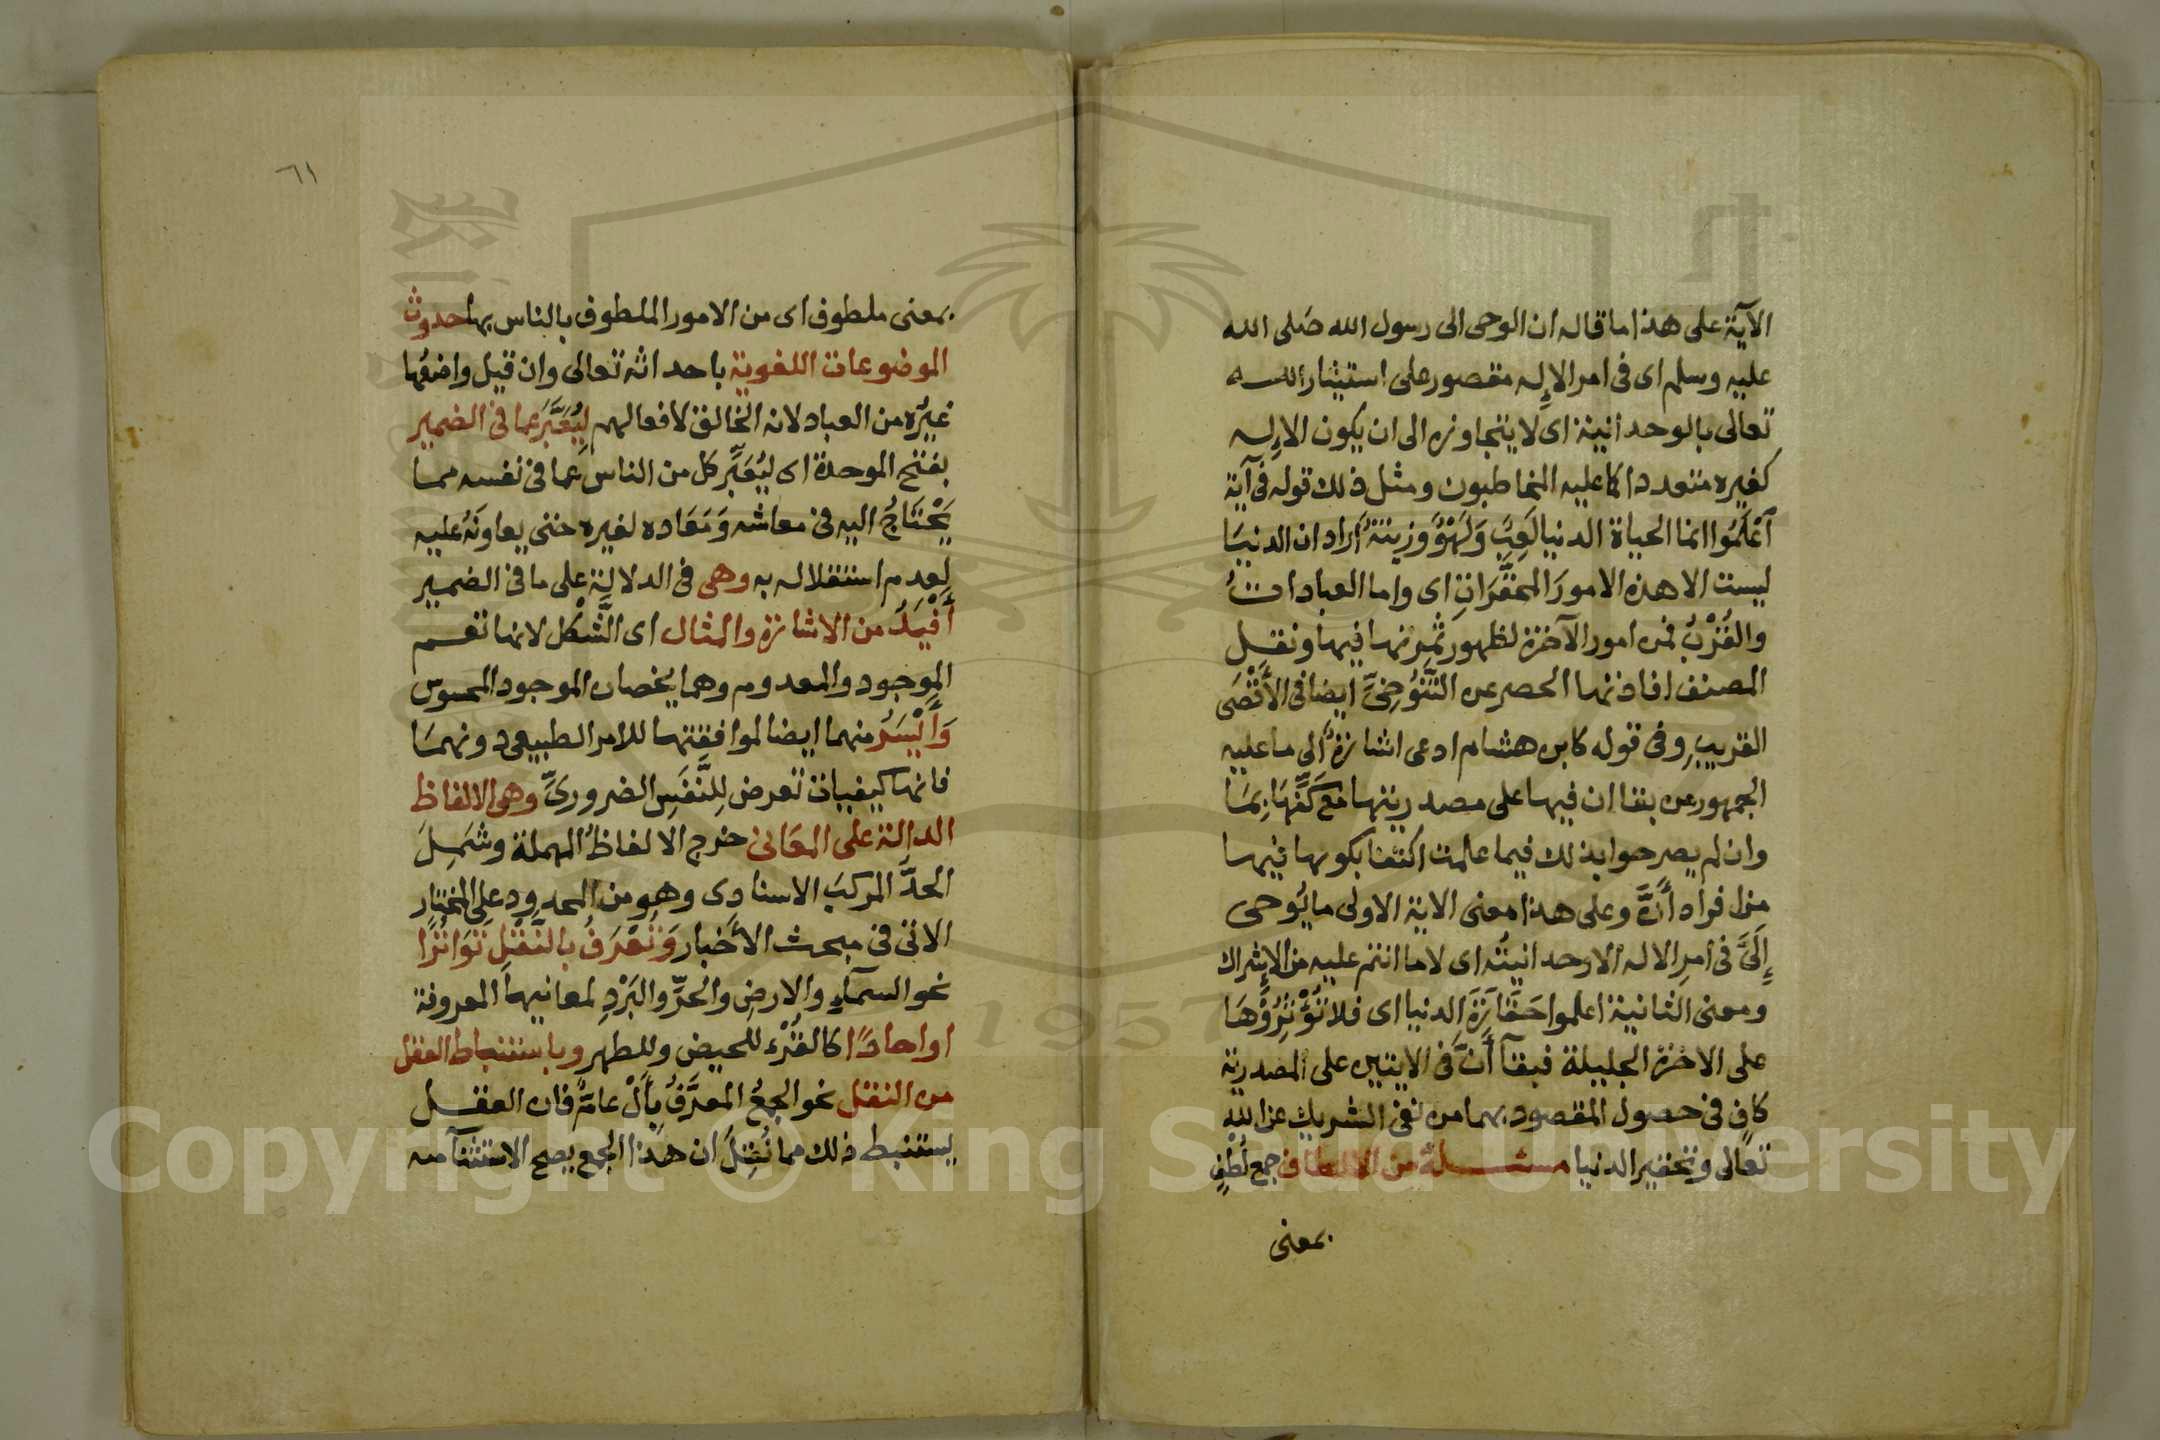 الآية على هذا ما قاله ان الوحى الى رسول الله صَلى الله
عليه وسلم اى فى امر الإله مقصور على استيثار الله
تعالى بالوحدانية اى لا يتجاوزه الى ان يكون الاله
كغيره متعددا كما عليه المخاطبون ومثل ذلك قوله فى آية
اَعْلَمُوا انما الحياة الدنيا لَعِبٌ وَلَهْوٌ وزينةٌ أراد ان الدنيَا
ليست الا هذه الامورَ المحقَّرَاتِ اى واما العباداتُ
والقُرَبُ فمن امور الآخرة لظهور ثمرتها فيها ونقل
المصنف افادتها الحصر عن التَّنُوخِىِّ ايضا فى الأَقْصَى
القريبِ وفى قوله كابن هشام ادعى اشارةٌ الى ما عليه
الجمهور من بقا ان فيها على مصدريتها مع كَفِّهَا بِمَا
وان لم يصرحوا بذلك فيما علمت اكتفا بكونها فيها
من افراد أَنَّ وعلى هذا معنى الاية الاولى ما يُوحى
إِلَىَّ فى امرِ الاله الا وحدانيتُه اى لا ما انتم عليه من الإشراك
ومعنى الثانية اعلموا حَقَارَةَ الدنيا اى فلا تُؤْثِرُوْهَا
على الاخرة الجليلة فبقآ أَنَّ فى الايتين على المصدرية
كافٍ فى حصول المقصود بهما من نفى الشريك عن الله
تعالى وتحقير الدنيا مسئلةٌ من الالطاف جمع لُطْفٍ
بمعنى
٦١
بمعنى ملطوف اى من الامور الملطوف بالناس بها حدوث
الموضوعات اللغوية باحداثه تعالى وان قيل واضعُها
غيرُه من العباد لانه الخالق لافعالهم لِيُعَبَّرَ عما فى الضمير
بفتح الموحدة اى ليُعَبِّر كل من الناس عما فى نفسه مما
يَحْتَاجُ اليه فى معاشه وَمَعَاده لغيره حتى يعاونَهُ عليه
لِعدم استقلاله به وهى فى الدلالة على ما فى الضمير
أَفْيَدُ من الاشارة والمثال اى الشَّكْلِ لانها تعم
الموجود والمعدوم وهما يخصان الموجود المحسوس
وَأَيْسَرُ منهما ايضا لموافقتها للامر الطبيعى دونهمَا
فانها كيفيات تعرض لِلنَّفَسِ الضرورىِّ وهى الالفاظ
الدالة على المعَانى خرج الالفاظُ المهملة وشَمِلَ
الحدُّ المركبَ الاسنادى وهو من المحدودِ على المختار
الاتى فى مبحث الأَخبار وَتُعْرَفُ بالنَّقْلِ تَوَاتُرًا
نحو السمآءِ والارضِ والحرِّ والبَرْدِ لمعانيها المعروفة
او احادًا كالقُرْء للحيض وللطهر وباستنباط العقل
من النقل نحو الجمعُ المعرَّفُ بِأَلْ عامٌّ فان العقل
يستنبط ذلك مما نُقِلَ ان هذا الجمع يصح الاستثنآ منه
Copyright © King Saud University
1957